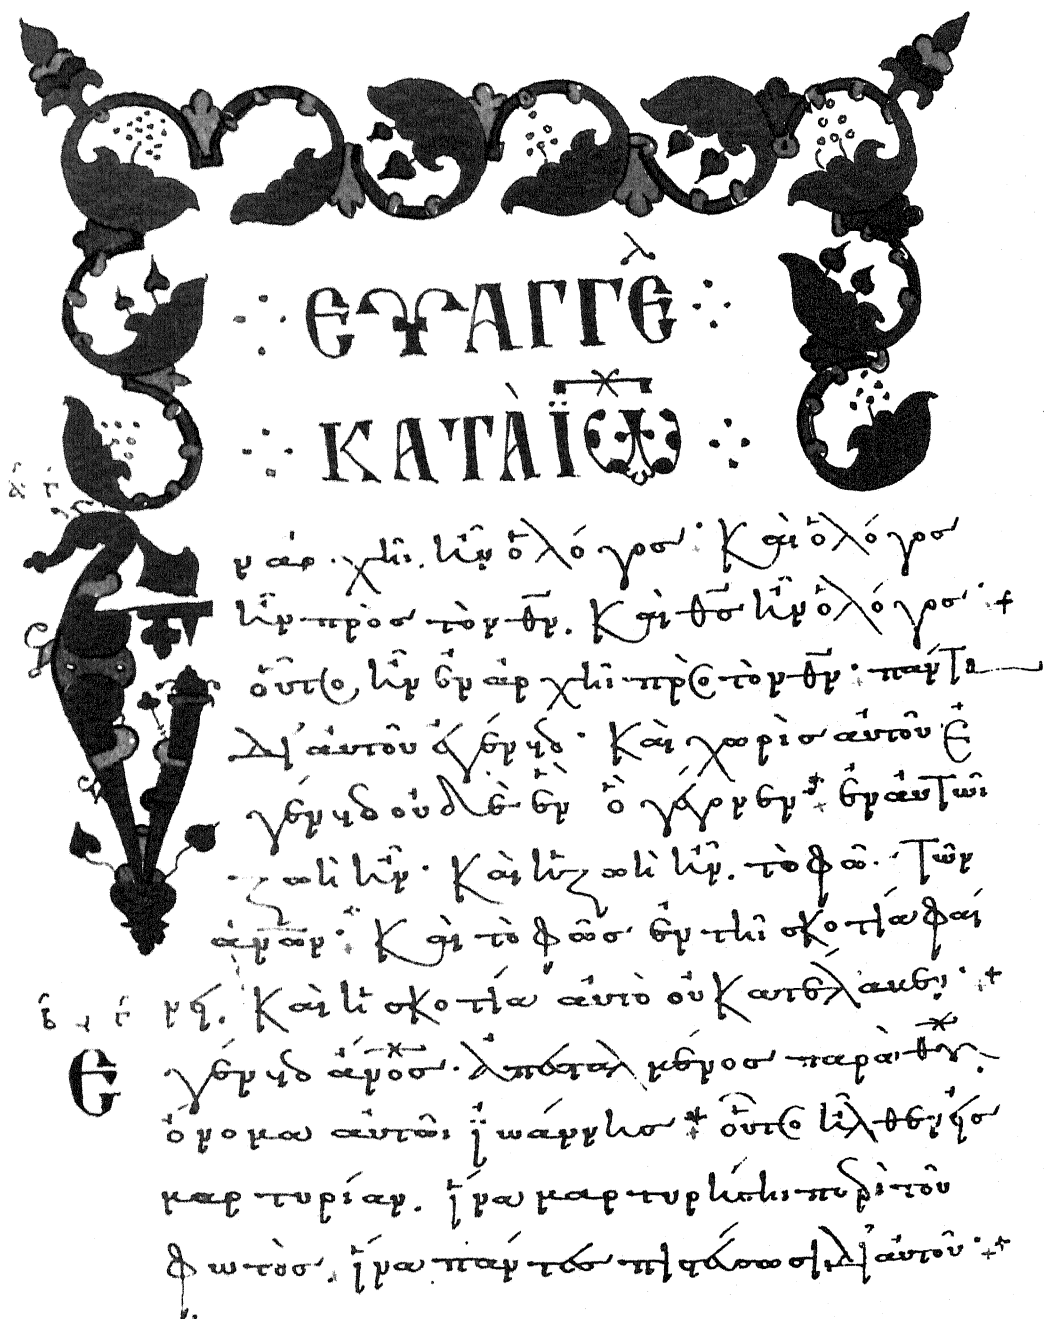 ΕΥΑΓΓΕ^λ
ΚΑΤᾺ ΪΩ
Ἐν ἀρχῆι. ἦν ὁ λόγος· καὶ ὁ λόγος
ἦν πρὸς τὸν θν. καὶ θς ἦν ὁ λόγος· +
οὗτος ἦν ἐν ἀρχῆι πρὸς τὸν θν· πάντα
δι' αὐτοῦ ἐγένετο· καὶ χωρὶς αὐτοῦ ἐ
γένετο οὐδὲ ἓν ὃ γέγονεν + ἐν αὐτῶι
ζωὴ ἦν· καὶ ἡ ζωὴ ἦν. τὸ φῶ· τῶν
ἀνων· καὶ τὸ φῶς ἐν τῆι σκοτία φαί
νει. καὶ ἡ σκοτία αὐτὸ οὐ κατέλαβεν· +
Ἐγένετο ἄνος· ἀπεσταλμένος παρὰ θυ.
ὄνομα αὐτῶι ἰωάννης + οὗτος ἦλθεν εἰς
μαρτυρίαν. ἵνα μαρτυρήση περὶ τοῦ
φωτός. ἵνα πάντες πιστεύσωσι δι' αὐτοῦ· +